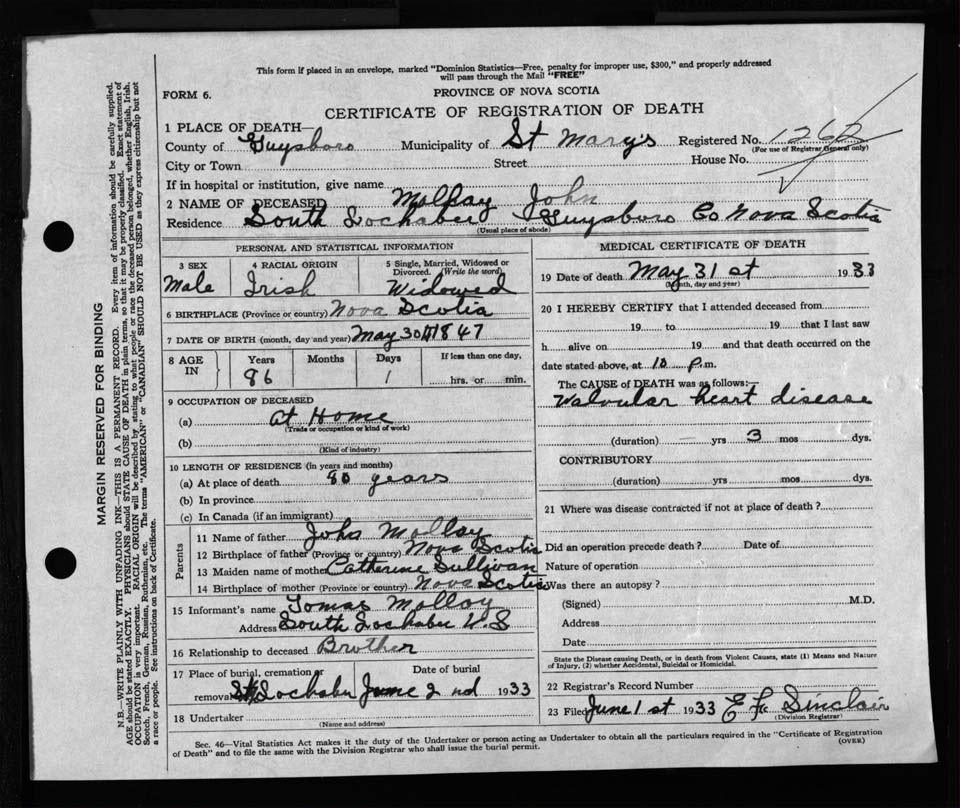 This form if placed in an envelope, marked "Dominion Statistics—Free, penalty for improper use, $300," and properly addressed
will pass through the Mail "FREE"
FORM 6.
PROVINCE OF NOVA SCOTIA
CERTIFICATE OF REGISTRATION OF DEATH
1 PLACE OF DEATH—
County of Guysboro Municipality of St Mary's Registered No. 1262
(For use of Registrar General only)
City or Town Street House No.
If in hospital or institution, give name
2 NAME OF DECEASED Molloy John
Residence South Lochaber Guysboro Co Nova Scotia
(Usual place of abode)
PERSONAL AND STATISTICAL INFORMATION
3 SEX 4 RACIAL ORIGIN 5 Single, Married, Widowed or
Divorced. (Write the word)
Male Irish Widowed
6 BIRTHPLACE (Province or country) Nova Scotia
7 DATE OF BIRTH (month, day and year) May 30th 1847
8 AGE IN Years Months Days If less than one day,
86 1 hrs. or min.
9 OCCUPATION OF DECEASED
(a) at Home
(Trade or occupation or kind of work)
(b)
(Kind of industry)
10 LENGTH OF RESIDENCE (in years and months)
(a) At place of death 80 years
(b) In province
(c) In Canada (if an immigrant)
Parents
11 Name of father John Molloy
12 Birthplace of father (Province or country) Nova Scotia
13 Maiden name of mother Catherine Sullivan
14 Birthplace of mother (Province or country) Nova Scotia
15 Informant's name Tomas Molloy
Address South Lochaber N.S
16 Relationship to deceased Brother
17 Place of burial, cremation or Date of burial
removal Lochaber June 2nd 1933
18 Undertaker
(Name and address)
MEDICAL CERTIFICATE OF DEATH
19 Date of death May 31st 1933
(Month, day and year)
20 I HEREBY CERTIFY that I attended deceased from
19 to 19 that I last saw
h alive on 19 and that death occurred on the
date stated above, at 10 p.m.
The CAUSE of DEATH was as follows:—
Valvular heart disease
(duration) — yrs 3 mos dys.
CONTRIBUTORY
(duration) yrs mos dys.
21 Where was disease contracted if not at place of death?
Did an operation precede death? Date of
Nature of operation
Was there an autopsy?
(Signed) M.D.
Address
Date
State the Disease causing Death, or in death from Violent Causes, state (1) Means and Nature
of Injury, (2) whether Accidental, Suicidal or Homicidal.
22 Registrar's Record Number
23 Filed June 1st 1933 Sinclair
(Division Registrar)
Sec. 46—Vital Statistics Act makes it the duty of the Undertaker or person acting as Undertaker to obtain all the particulars required in the "Certificate of Registration
of Death" and to file the same with the Division Registrar who shall issue the burial permit.
(OVER)
MARGIN RESERVED FOR BINDING
N.B.—WRITE PLAINLY WITH UNFADING INK—THIS IS A PERMANENT RECORD. Every item of information should be carefully supplied.
AGE should be stated EXACTLY. PHYSICIANS should STATE CAUSE OF DEATH in plain terms, so that it may be properly classified. Exact statement of
OCCUPATION is very important. RACIAL ORIGIN will be described by stating to what people or race the deceased person belonged, whether English, Irish,
Scotch, French, German, Russian, Ruthenian, etc. The terms "AMERICAN" or "CANADIAN" SHOULD NOT BE USED as they express citizenship but not
a race or people. See instructions on back of Certificate.